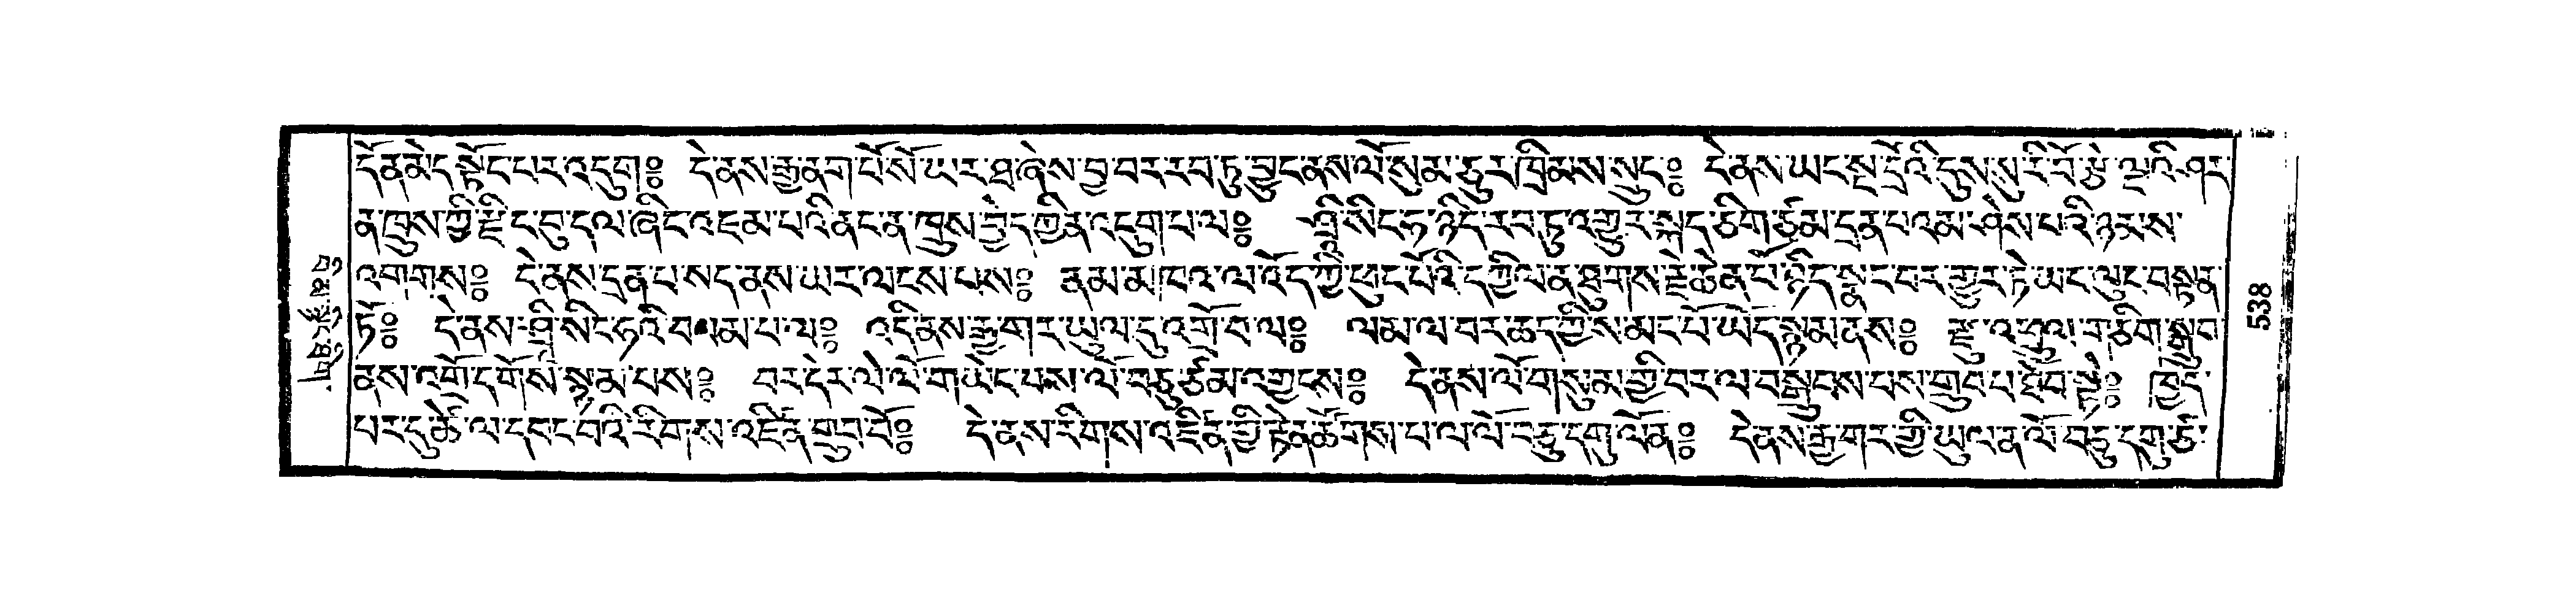 དོན་མེད་སྟོང་པར་འདུག༔ དེ་ནས་རྒྱ་ནག་པོ་སོ་ཡར་ཐ་ཞེས་བྱ་བར་རབ་ཏུ་བྱུང་ནས་ལོ་སུམ་ཅུར་ཁྲིམས་སྲུང༔ དེ་ནས་ཡང་སྔ་དྲོའི་དུས་སུ་རི་བོ་རྩེ་ལྔའི་ཤར་
ན་ཁྲུས་ཀྱི་རྫིང་བུ་དལ་ཞིང་འཇམ་པའི་ནང་ན་ཁྲུས་བྱེད་ཀྱིན་འདུག་པ་ལ༔ ཤྲཱི་སིང་ཧ་ཉིད་རབ་ཏུ་འགྱུར་སྐད་ཅིག་ཙམ་དྲན་པའམ་ཤེས་པའི་ཉམས་
འགགས༔ དེ་ནས་དྲན་པ་སད་ནས་ཡར་ལངས་པས༔ ནམ་མཁའ་ལ་འོད་ཀྱི་ཕུང་པོའི་དཀྱིལ་ན་ཐུགས་རྗེ་ཆེན་པོ་ཉིད་སྣང་བར་གྱུར་ཏེ་ཡང་ལུང་བསྟན་
ཏོ༔ དེ་ནས་ཤྲཱི་སིང་ཧའི་བསམ་པ་ལ༔ འདི་ནས་རྒྱ་གར་ཡུལ་དུ་འགྲོ་བ་ལ༔ ལམ་ལ་བར་ཆད་ཀྱི་ས་མང་པོ་ཡོད་སྙམ་ནས༔ རྫུ་འཕྲུལ་གཅིག་སྒྲུབ་
ནས་འགྲོ་དགོས་སྙམ་པས༔ བར་དེར་ལེ་ལོ་གཡེང་པས་ལོ་བཅུ་ཙམ་འགྱངས༔ དེ་ནས་ལོ་གསུམ་གྱི་བར་ལ་བསྒྲུབས་པས་གྲུབ་པ་ཐོབ་སྟེ༔ ཁྱད་
པར་དུ་ཚེ་ལ་དབང་བའི་རིགས་འཛིན་གྲུབ་བོ༔ དེ་ནས་རིགས་འཛིན་གྱི་རྟེན་ཚོགས་པ་ལ་ལོ་བཅུ་དགུ་ལོན༔ དེ་ནས་རྒྱ་གར་གྱི་ཡུལ་ན་ལོ་བཅུ་དགུ་ཙ་
538